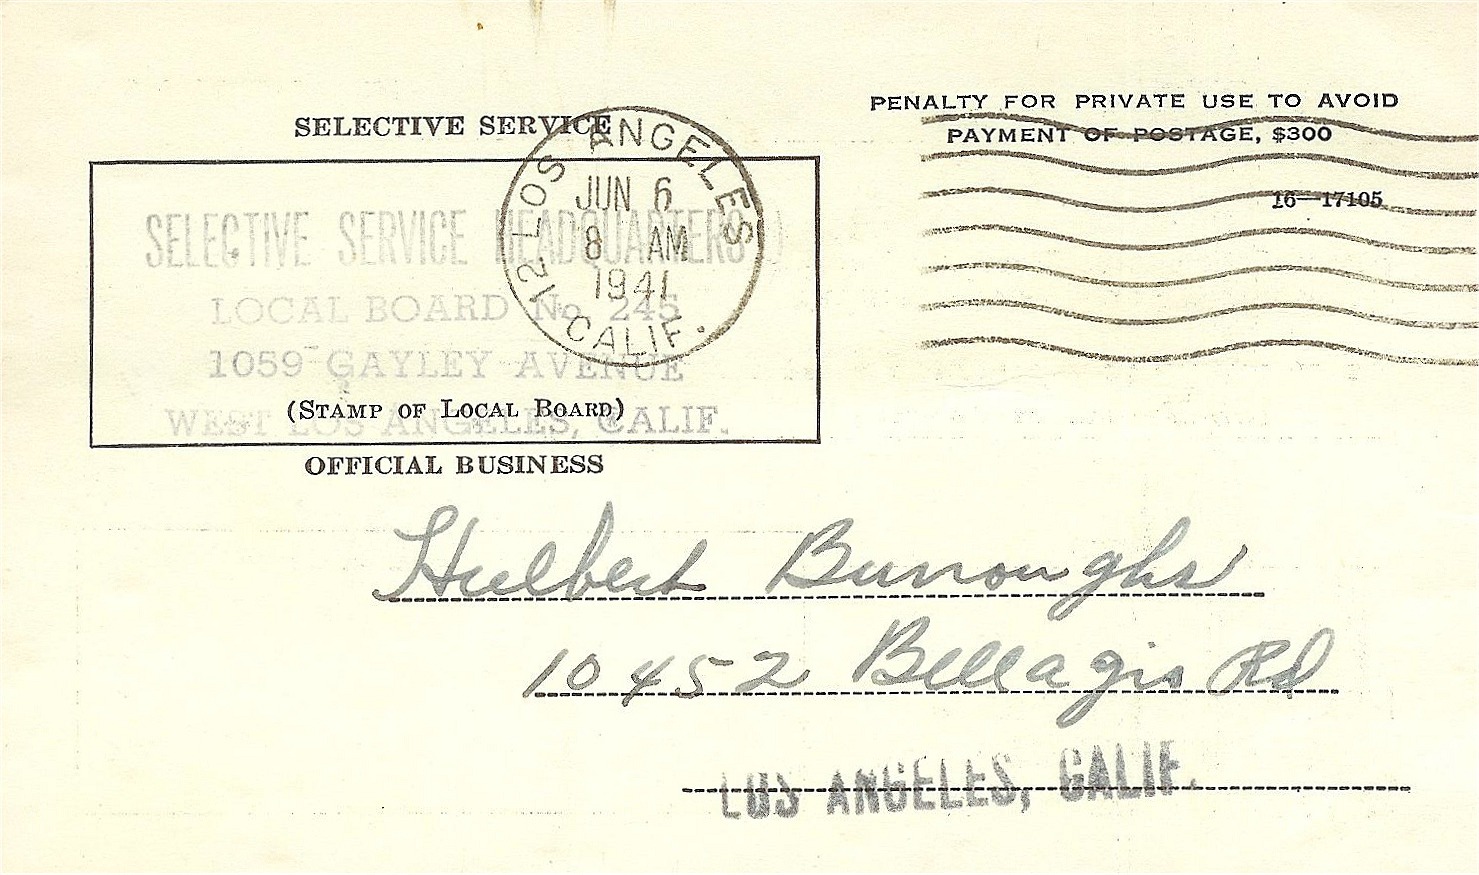 SELECTIVE SERVICE
PENALTY FOR PRIVATE USE TO AVOID
PAYMENT OF POSTAGE, $300
16—17105
LOS ANGELES
12 CALIF.
JUN 6
8 AM
1941
SELECTIVE SERVICE HEADQUARTERS
LOCAL BOARD No. 245
1059 GAYLEY AVENUE
WEST LOS ANGELES, CALIF.
(STAMP OF LOCAL BOARD)
OFFICIAL BUSINESS
Hulbert Burroughs
10452 Bellagio Rd
LOS ANGELES, CALIF.